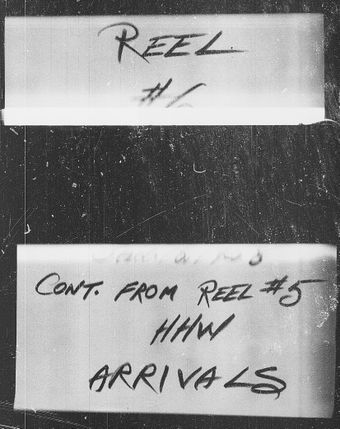 REEL
#6
CONT. FROM REEL #5
HHW
ARRIVALS